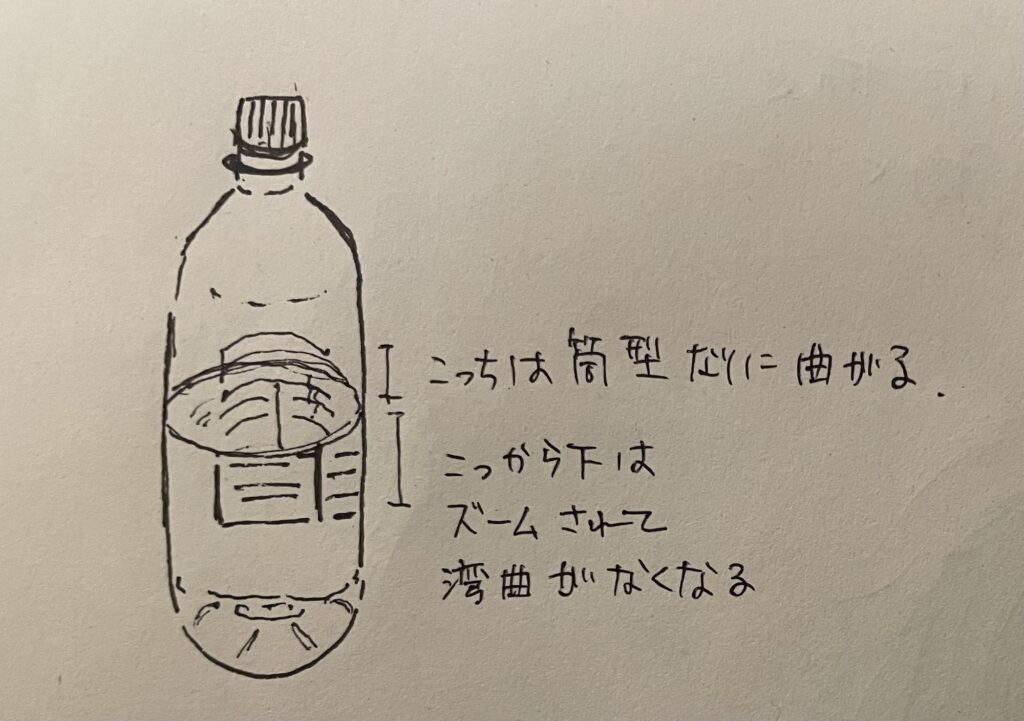 こっちは筒型なりに曲がる.
こっから下は
ズームされて
湾曲がなくなる